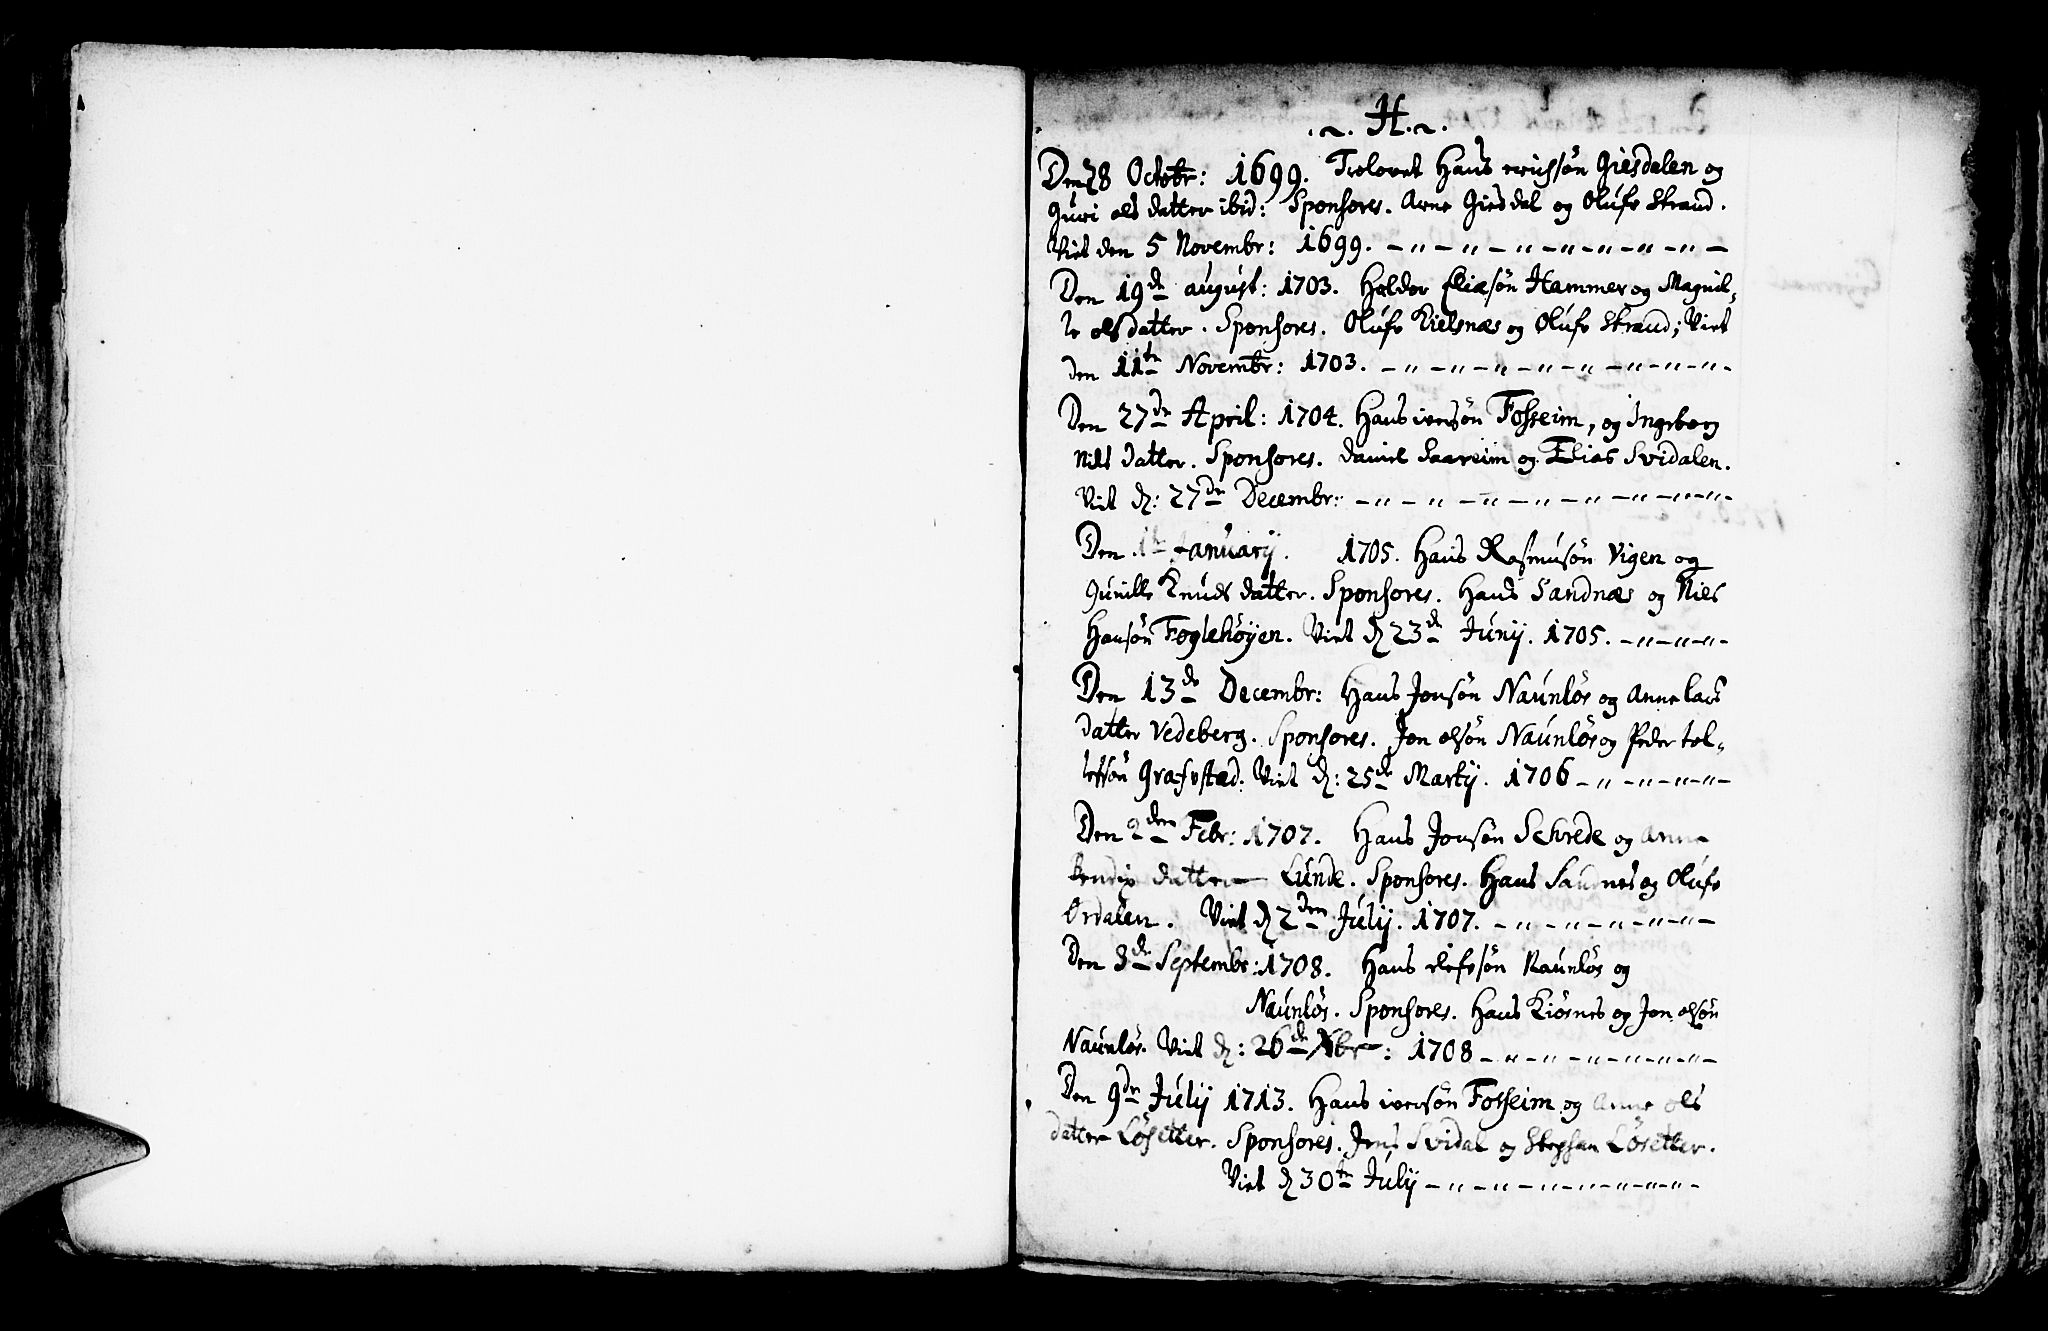 .~. H. ~.
Den 28 Octobr: 1699. Trolovet Hans erichsøn Giesdalen og
Guri ols datter ibid: Sponsores. Arne Giesdal og Olufe Strand.
Viet den 5 Novembr: 1699. - „ - „ - „ - „ - „ - „ - „ -
Den 19de august: 1703. Haldor Eliæsøn Hammer og Magnil-
le olsdatter. Sponsores. Olufe Kielsnæs og Olufe Strand; Viet
den 11te Novembr: 1703. - „ - „ - „ - „ - „ - „ - „ - „ -
Den 27de April: 1704. Hans iversøn Fosseim, og Ingeborg
Nils datter. Sponsores. Daniel Saareim og Elias Svidalen.
Viet d: 27de Decembr: - „ - „ - „ - „ - „ - „ - „ - „ -
Den 1te January. 1705. Hans Rasmusøn Vigen og
Gunille Knuds datter. Sponsores. Hans Sandnæs og Niels
Hansøn Foglehøyen. Viet d 23de Junij. 1705. - „ - „ - „ -
Den 13de Decembr: Hans Jonsøn Naunløs og Anne lars
datter Vedeberg. Sponsores. Jon olsøn Naunløs og Peder tol-
lefsøn Græfstad. Viet d: 25de Martij. 1706 - „ - „ - „ - „ -
Den 2den Febr: 1707. Hans Jonsøn Schrede og Anne
Bendix datter Lunde. Sponsores. Hans Sandnes og Olufe
Ordalen. Viet d 2den Julij. 1707. - „ - „ - „ - „ - „ -
Den 8de Septembr: 1708. Hans olefsøn Naunløs og
Naunløs. Sponsores. Hans Kiørnes og Jon olsøn
Naunløs. Viet d: 26de Xbr: 1708 - „ - „ - „ - „ - „ -
Den 9de Julij 1713. Hans iversøn Fosseim og Anne ols
datter Løsetter. Sponsores. Jens Svidal og Stephan Løsetter.
Viet d 30te Julij - „ - „ - „ - „ - „ - „ -